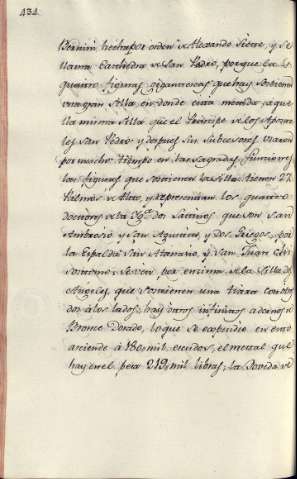 434.
Bernini hecha por orden de Alexandro Septe, y se
llama Cathedra de San Pedro, porque la
quatro figuras giganteas que hay sostienen
una gran Silla, en donde esta metida aque
lla misma Silla que el Principe de los Aposto
les San Pedro, y despues sus Subcesores usaron
por mucho tiempo en las Sagradas funciones;
las figuras que sostienen la silla tienen 22
Palmos de Alto, y representan los quatro
doctores de la Yga. dos Latinos, que son San
Ambrosio y San Agustin, y dos Griegos, por
la espalda San Atanasio, y San Juan Chri
sostomo; se ven por encima de la Silla dos
Angeles, que sostienen una tiara con
dos a los lados; hay otros infinitos adornos de
Bronce Dorado, lo que se expendio en esto
asciende a 180, mil escudos, el metal que
hay en el pesa 219, mil libras; la Boveda de